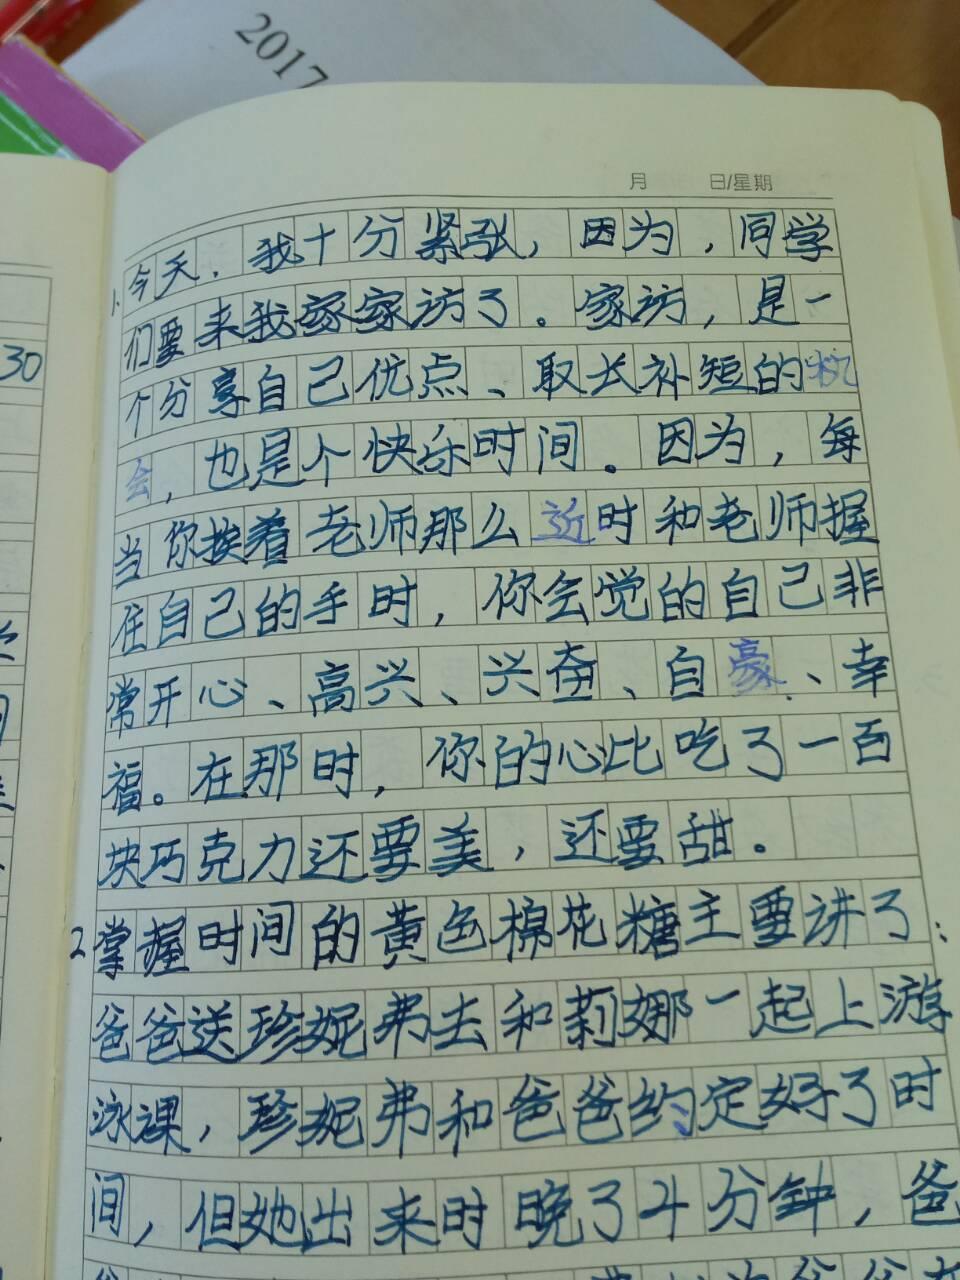 2017
月 日/星期
30
1.今天，我十分紧张，因为，同学
们要来我家家访了。家访，是一
个分享自己优点、取长补短的机
会，也是个快乐时间。因为，每
当你挨着老师那么近时和老师握
住自己的手时，你会觉的自己非
常开心、高兴、兴奋、自豪、幸
福。在那时，你的心比吃了一百
块巧克力还要美，还要甜。
2掌握时间的黄色棉花糖主要讲了：
爸爸送珍妮弗去和莉娜一起上游
泳课，珍妮弗和爸爸约定好了时
间，但她出来时晚了4分钟，爸